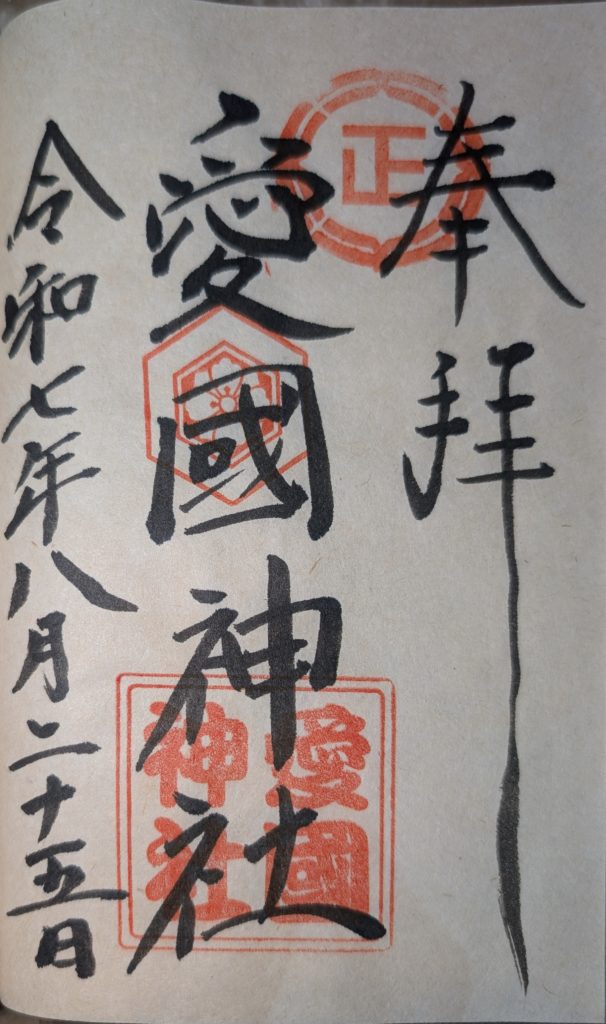 奉拝
正
愛國神社
愛國
神社
令和七年八月二十五日